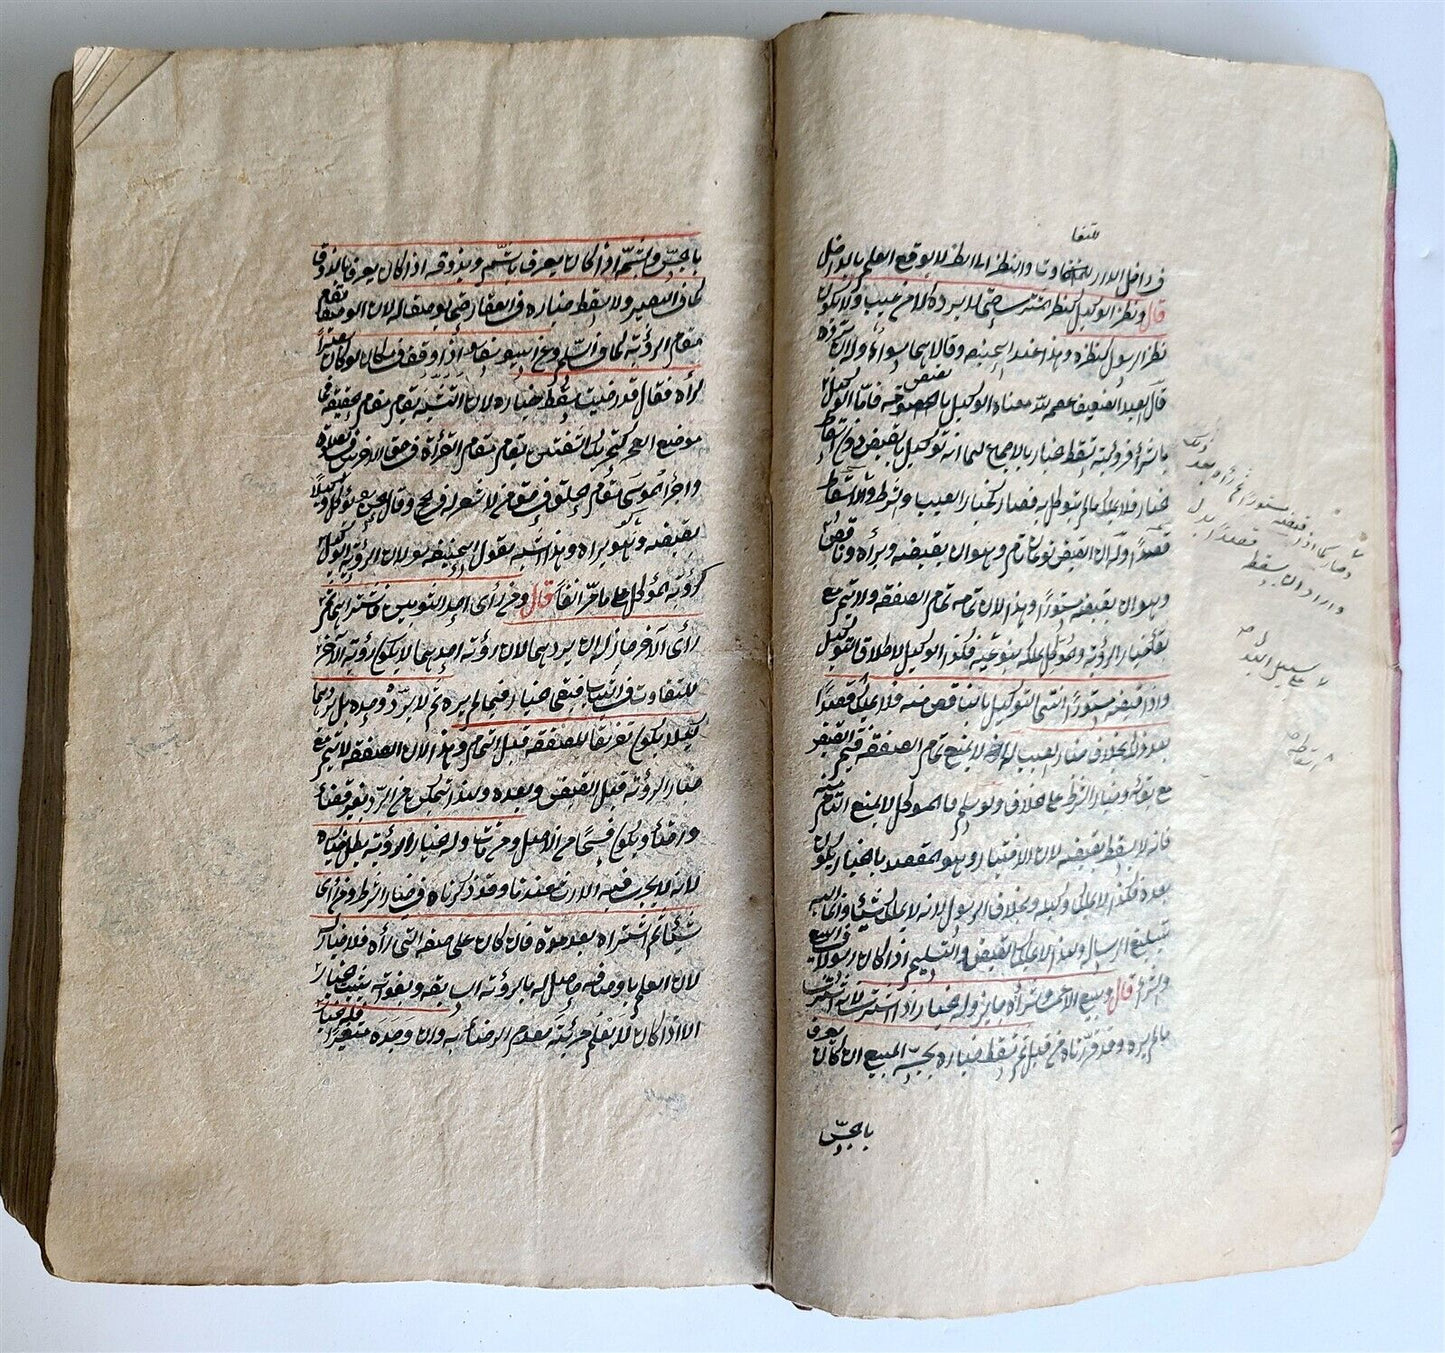 في داخل الدار للتفاوت والنظر الى الظاهر لا يوقع العلم بالداخل
قال ونظر الوكيل كنظر المشترى حتى لا يرده الا من عيب ولا يكون
نظر الرسول كنظره وهذا عند ابيحنيفة وقالا هما سواء وله ان يرده
قال العبد الضعيف عصمه الله معناه الوكيل بالقبض فاما الوكيل
بالشراء فرؤيته تسقط خيار بالاجماع لهما انه توكيل بالقبض دون اسقاط
خيار فلا يملك ما لم يتوكل به فصار كخيار العيب والشرط والاسقاط
قصدًا وله ان القبض نوعان تام وهو ان يقبضه ويراه وناقص
وهو ان يقبضه مستورًا وهذا لان تمامه تمام الصفقة ولا يتم مع
بقاء خيار الرؤية والموكل ملكه بنوعيه فكذا الوكيل لاطلاق التوكيل
واذا قبضه مستورًا انتهى التوكيل بالناقص منه فلا يملك قصدًا
بعد ذلك بخلاف خيار العيب لانه لا يمنع تمام الصفقة فيتم القبض
مع بقائه وخيار الشرط على خلاف ولو سلم فالموكل لا يمنع التام منه
فانه لا يسقط بقبضه لان الاختيار وهو المقصد بالخيار يكون
بعده فكذا لا يملك وكيله وبخلاف الرسول لانه لا يملك شيئا وانما اليه
تبليغ الرسالة ولهذا لا يملك القبض والتسليم اذا كان رسولا في البيع
والشراء قال وبيع الاعمى وشراه جايز وله الخيار اذا اشترى لانه اشترى
ما لم يره وقد قررناه من قبل ثم يسقط خياره بجسه المبيع ان كان يعرف
بالجسّ
بالجسّ ويشمّه اذا كان يعرف بالشّم ويذوقه اذا كان يعرف بالذوق
كما في البصير ولا يسقط خياره في العقار حتى يوصف له لان الوصف يقام
مقام الرؤية كما في السّلم وعن ابييوسف انه اذا وقف في مكان لو كان بصيرًا
لرآه فقال قد رضيت يسقط خياره لان التشبه يقام مقام الحقيقة في
موضع العجز كتحريك الشفتين يقام مقام القرأة في حق الاخرس في الصلوة
واجراء الموسى مقام الحلق في حق من لا شعر له في الحج وقال الحسن يوكل وكيلا
بقبضه وهو يراه وهذا اشبه بقول ابيحنيفة لان رؤية الوكيل
كرؤية المؤكل على ما مرّ انفًا قال ومن رأى احد الثوبين فاشتراهما ثم
رأى الآخر جاز له ان يردهما لان رؤية احدهما لا يكون رؤية الآخر
للتفاوت في الثياب فبقي خيار فيما لم يره ثم لا يردّ وحده بل يردهما
كيلا يكون تفريقا للصفقة قبل التمام وهذا لان الصفقة لا يتم مع
خيار الرؤية قبل القبض وبعده ولهذا يتمكن من الردّ بغير قضاء
ورضاء ويكون فسخًا من الاصل ومن مات وله خيار الرؤية بطل خياره
لانه لا يجرى فيه الارث عندنا وقد ذكرناه في خيار الشرط ومن رأى
شيئًا ثم اشتراه بعد مدة فان كان على صفة التى رآه فلا خيار له
لان العلم باوصافه حاصل له بالرؤية السابقة وبفواته يثبت خيار
الا اذا كان لا يعلم مرئيّه لعدم الرضاء به وان وجده متغيّرًا فله خيار